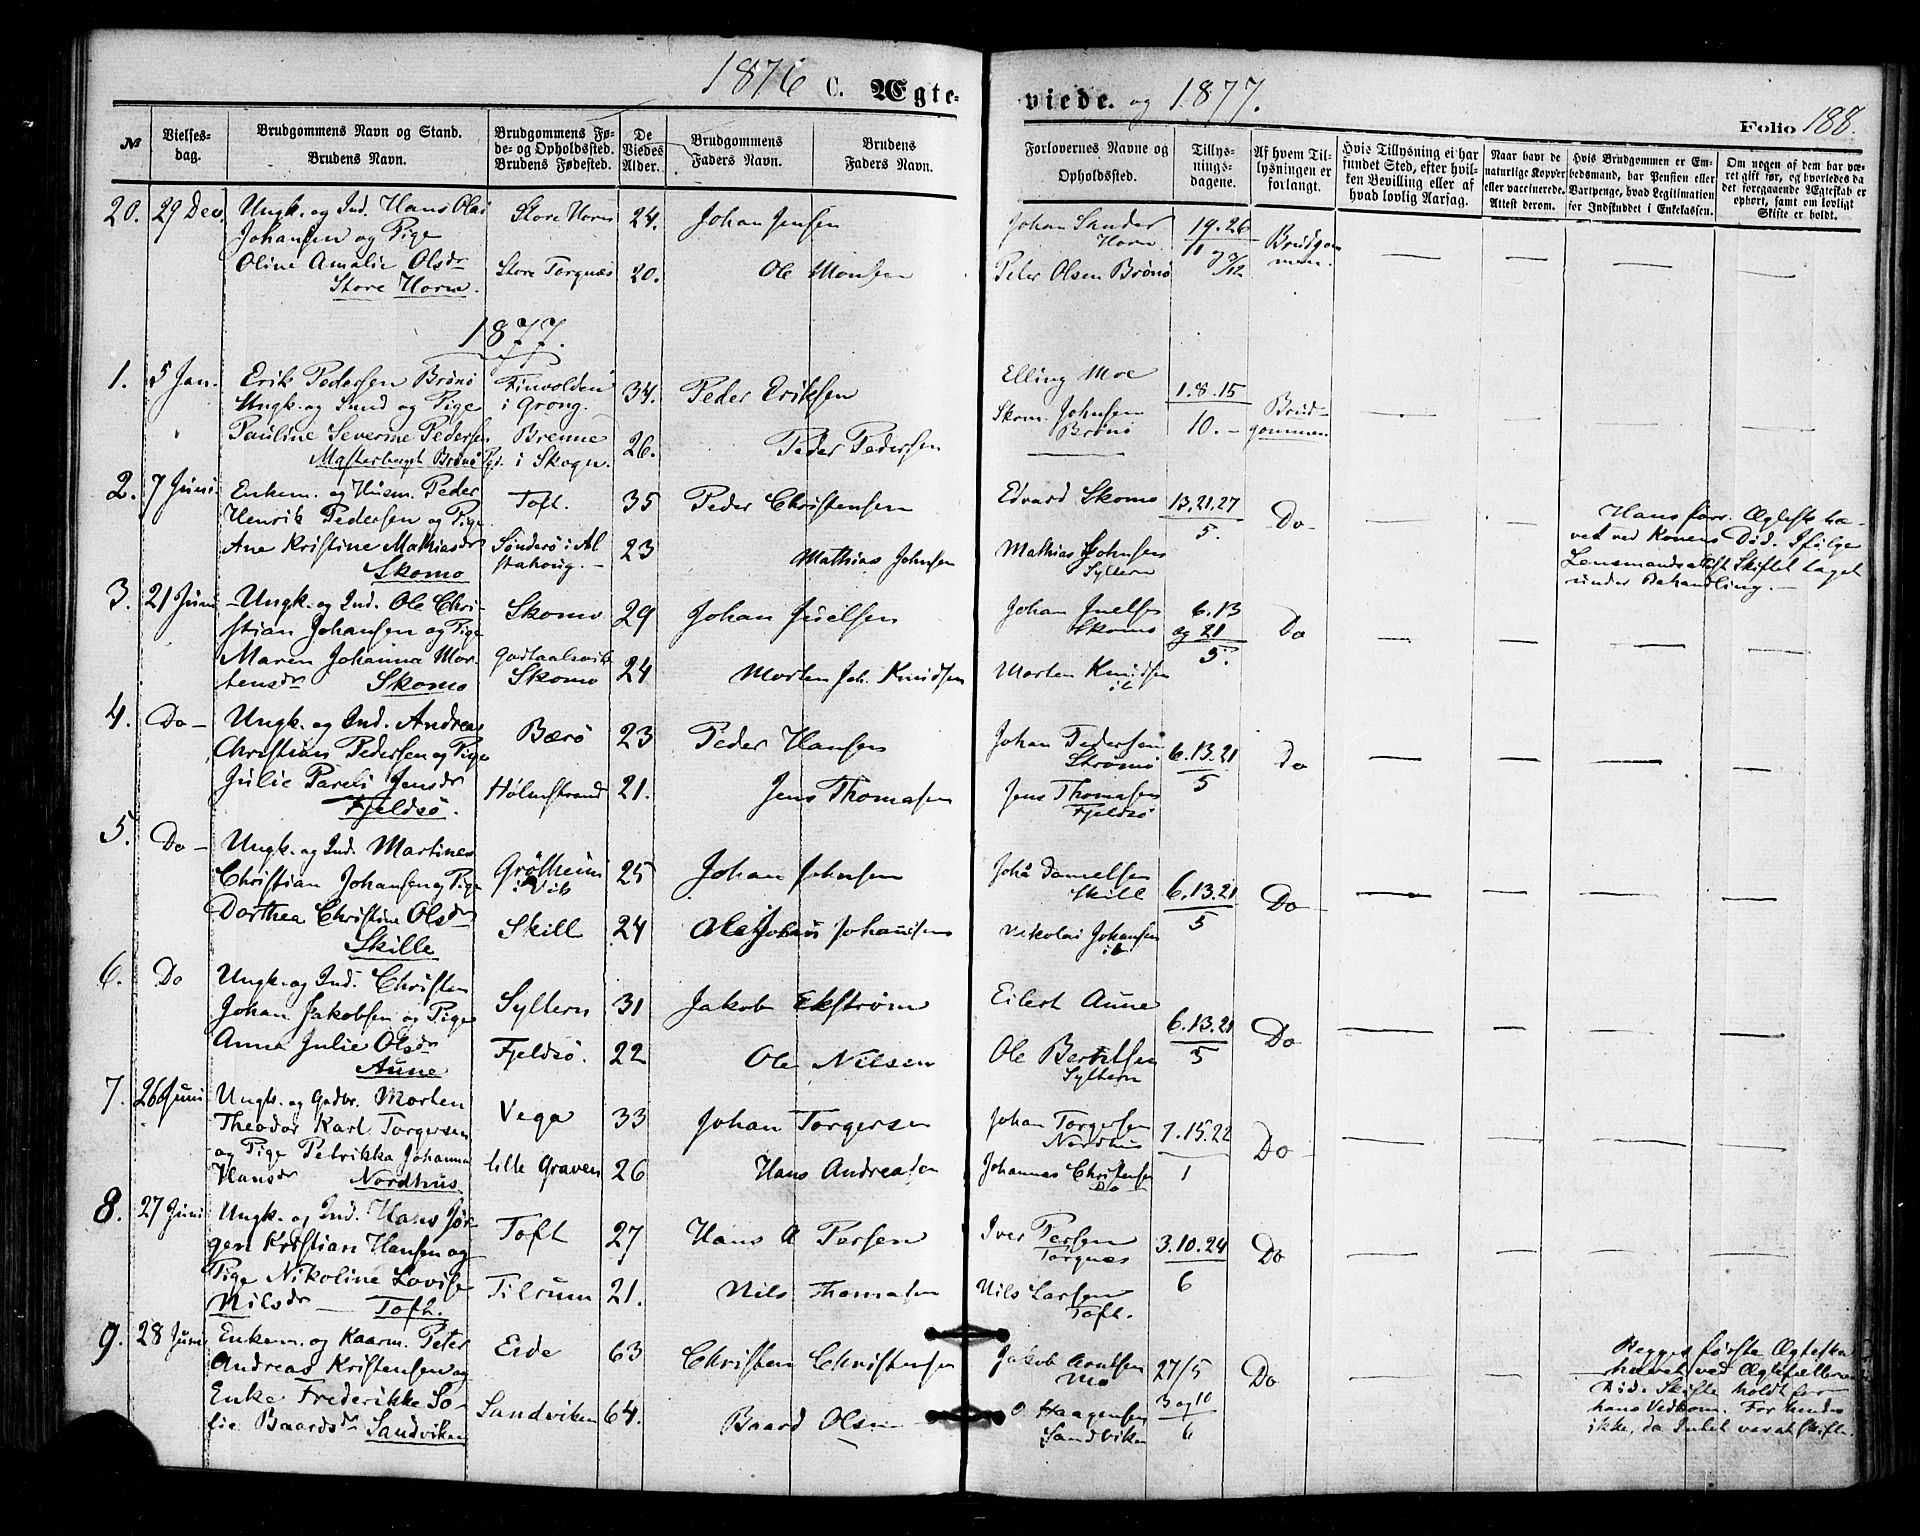 1876 C. Ægte-
viede. og 1877.
Folio 188.
№
Vielses-
dag.
Brudgommens Navn og Stand.
Brudens Navn.
Brudgommens Fø-
de- og Opholdsted.
Brudens Fødested.
De
Viedes
Alder.
Brudgommens
Faders Navn.
Brudens
Faders Navn.
Forlovernes Navne og
Opholdsted.
Tillys-
nings-
dagene.
Af hvem Til-
lysningen er
forlangt.
Hvis Tillysning ei har
fundet Sted, efter hvil-
ken Bevilling eller af
hvad lovlig Aarsag.
Naar havt de
naturlige Kopper
eller vaccinerede.
Attest derom.
Hvis Brudgommen er Em-
bedsmand, har Pension eller
Vartpenge, hvad Legitimation
for Indskuddet i Enkekassen.
Om nogen af dem har væ-
ret gift før, og hvorledes da
det foregaaende Ægteskab er
ophørt, samt om lovligt
Skifte er holdt.
20. 29 Dec. Ungk. og Ind. Hans Olai Store Horn 24. Johan Jensen
Johansen og Pige
Oline Amalie Olsdr Store Torgnæs 20. Ole Monsen
Store Horn.
Johan Sander
Horn.
19.26
11 og 3/12
Brudgom
men.
Peter Olsen Brønø
1877.
1. 5 Jan. Erik Pedersen Brønø Finvolden 34. Peder Eriksen
Ungk. og Ind og Pige i Grong.
Pauline Severine Pedersen Brenne 26. Peder Pedersen
Brønø i Skogn.
Elling Moe
1.8.15
Johnsen
Brønø
10. –
Brud-
gommen
2. 7 Juni Enkem. og Husm. Peder Toft. 35 Peder Christensen
Henrik Pedersen og Pige
Ane Kristine Mathiasdr Sønderø i Al 23 Mathias Johnsen
Skomo stahoug. –
Edvard Skomo
13.21.27
5.
Do
Mathias Johnsen
Syltern
Hans forr. Ægtesk. hæ-
vet ved Konens Død. Ifølge
Lensmandsattest Skiftet taget
under Behandling. –
3. 21 Juni Ungk. og Ind. Ole Chri- Skomo 29 Johan Juelsen
stian Johansen og Pige
Maren Johanna Mor-
tensdr Skomo
Skomo 24 Morten Joh. Knudsen
Johan Juelsen
Skomo
6.13
og 21
5.
Do
Morten Knudsen
ib
4. Do – Ungk. og Ind. Andreas Bærø 23 Peder Hansen
Christian Pedersen og Pige
Julie Pareli Jensdr Holmstrand 21. Jens Thomasen
Fjeldsø.
Johan Pedersen
Strømø
6.13.21
5
Do
Jens Thomasen
Fjeldsø
5. Do – Ungk. og Ind. Martines Grøtheim 25 Johan Johnsen
Christian Johansen og Pige i Vik
Dorthea Christine Olsdr Skill 24 Ole Johan Johansen
Skille
Joh. Danielsen
Skill
6.13.21
5
Do
Nikolai Johansen
ib
6. Do Ungk. og Ind. Christen Syltern 31 Jakob Ekstrøm
Johan Jakobsen og Pige
Anna Julie Olsdr Fjeldsø. 22 Ole Nilsen
Aune
Eilert Aune
6.13.21
5
Do
Ole Bertelsen
Syltern
7. 26 Juni Ungk. og Gadbr. Morten Vega 33 Johan Torgersen
Theodor Karl Torgersen
og Pige Petrikka Johanna lille Graven 26 Hans Andreasen
Hansdr Nordhus
Johan Torgersen
Nordhus
7.15.22
1
Do
Johannes Christensen
Do
8. 27 Juni Ungk. og Ind. Hans Jør- Toft 27 Hans A Persen
gen Kristian Hansen og
Pige Nikoline Lovise Tilrum 21. Nils Thomasen
Nilsdr – Toft.
Iver Persen
Torgnæs
3.10.24
6
Do
Nils Larsen
Toft.
9. 28 Juni Enkem. og Kaarm. Peter Eide 63 Christen Christensen
Andreas Kristensen og
Enke Frederikke So- Sandviken 64. Baard Olsen
fie Baardsdr Sandviken
Jakob Arntsen
Mo
27/5
3 og 10
6
Do
O. Haagensen
Sandviken
Begges første Ægteska
hævet ved Ægtefællernes
Død. Skifte holdt for
hans Vedkom. For hendes
ikke, da Intet var at skifte.